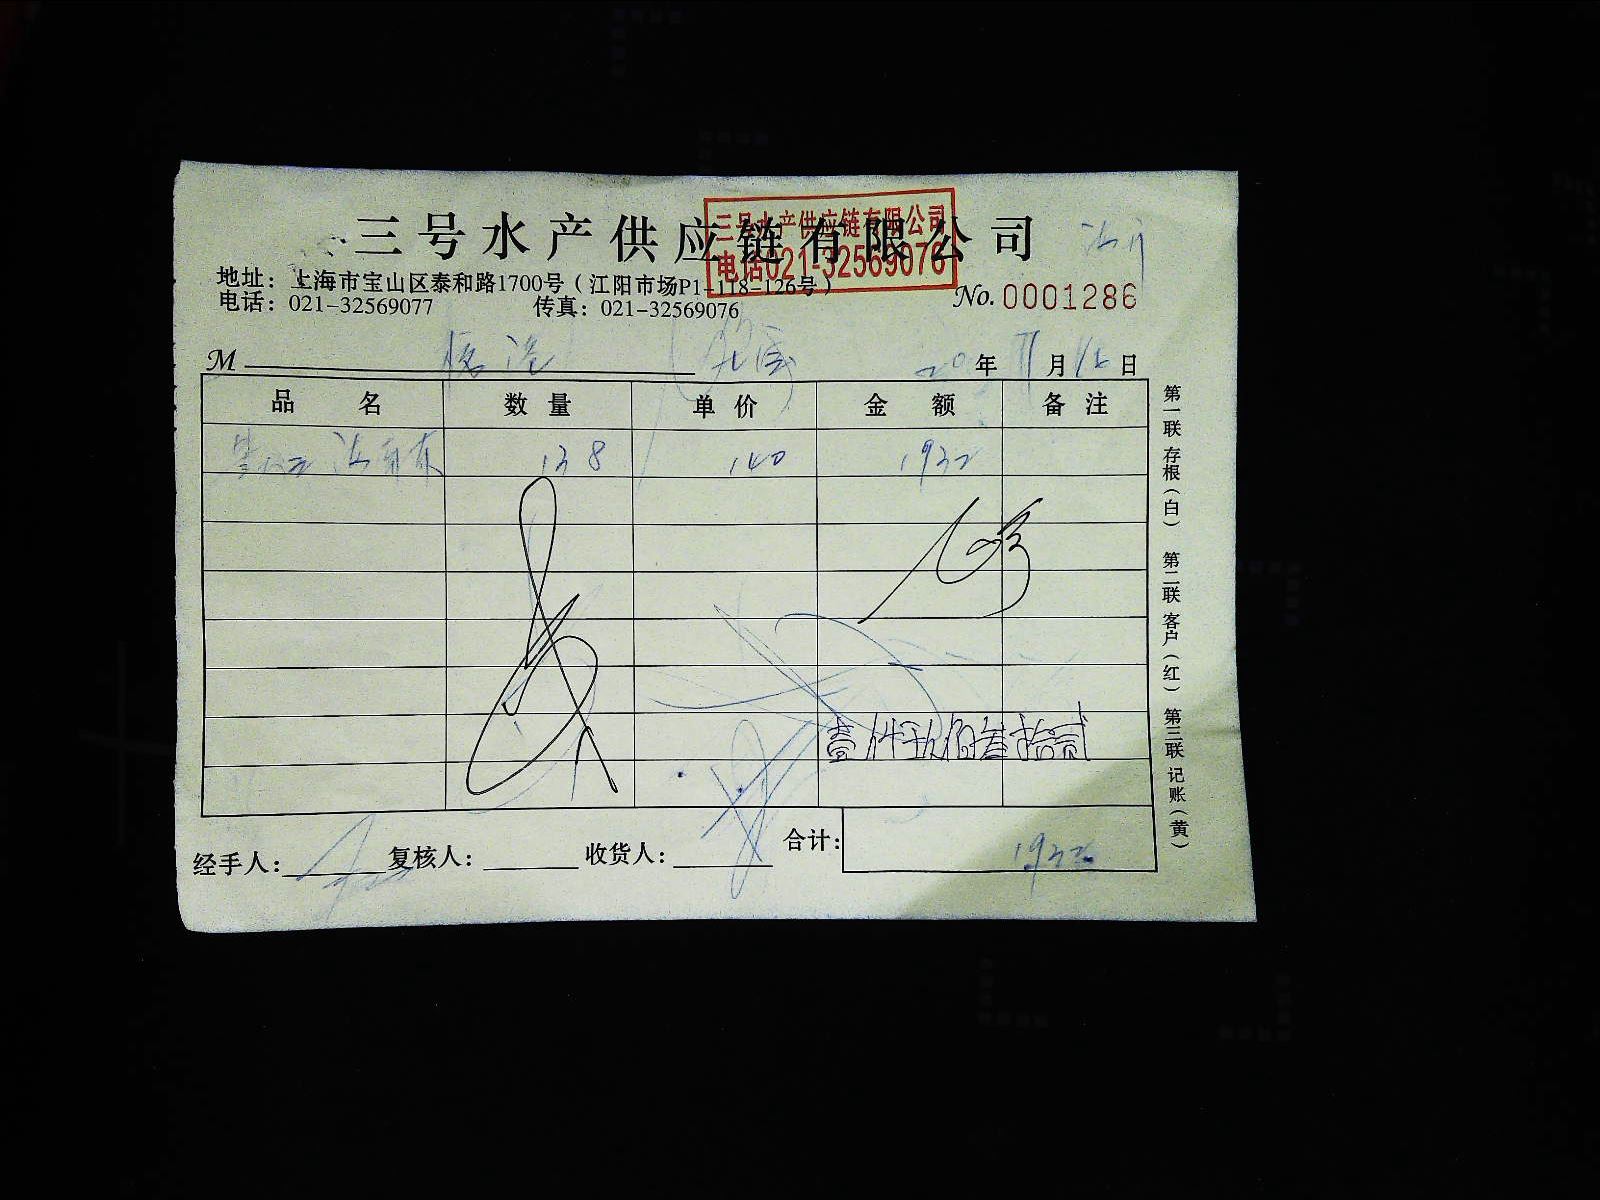 三号水产供应链有限公司
三号水产供应链有限公司
电话021-32569076
地址：上海市宝山区泰和路1700号（江阳市场P1-118-126号）
电话：021-32569077 传真：021-32569076
No. 0001286
M 年 11月 日
品名 数量 单价 金额 备注
138 140 1932
壹仟玖佰叁拾贰
经手人： 复核人： 收货人： 合计： 1932
第一联 存根（白） 第二联 客户（红） 第三联 记账（黄）